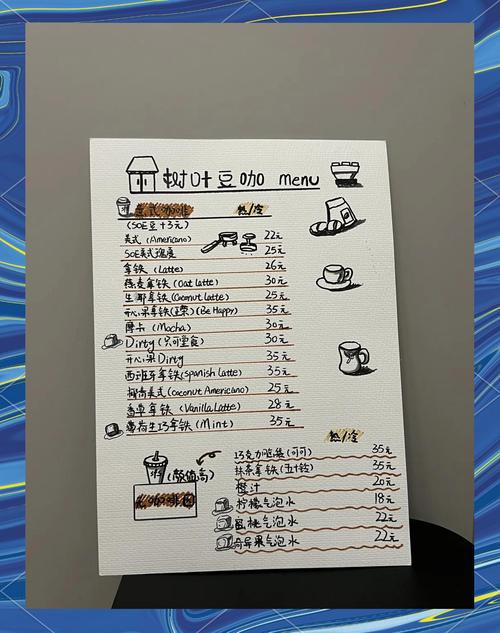 树叶豆咖 menu
意式咖啡 热/冷
(SOE豆+3元)
美式 (Americano) 22元
SOE美式 25元
拿铁 (Latte) 26元
燕麦拿铁 (Oat latte) 30元
生椰拿铁 (Coconut latte) 25元
开心果拿铁 (Be Happy) 35元
摩卡 (Mocha) 30元
Dirty (只可堂食) 30元
开心果 Dirty 35元
西班牙拿铁 (Spanish Latte) 35元
椰青美式 (Coconut Americano) 25元
香草拿铁 (Vanilla Latte) 28元
薄荷生巧拿铁 (Mint) 35元
热/冷
(颜值高)
非咖啡因
巧克力 (可可) 35元
抹茶拿铁 (五十铃) 35元
橙汁 20元
柠檬气泡水 18元
蜜桃气泡水 22元
奇异果气泡水 22元